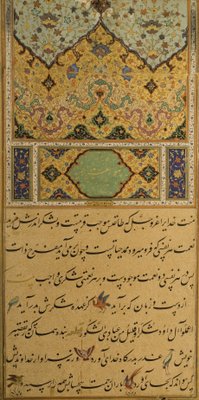 منت خدایرا عز و جل که طاعتش موجب قربتست و بشکر اندرش مزید
نعمت هر نفسی که فرو میرود ممد حیاتست و چون بر می آید مفرح ذات
پس در هر نفسی دو نعمت موجودست و بر هر نعمتی شکری واجب
از دست و زبان که برآید کز عهده شکرش بدر آید
اعملوا آل داود شکرا و قلیل من عبادی الشکور بنده همان به که ز تقصیر
خویش عذر بدرگاه خدای آورد ورنه سزاوار خداوندیش
کس نتواند که بجای آورد باران رحمت بی حسابش همه را رسیده